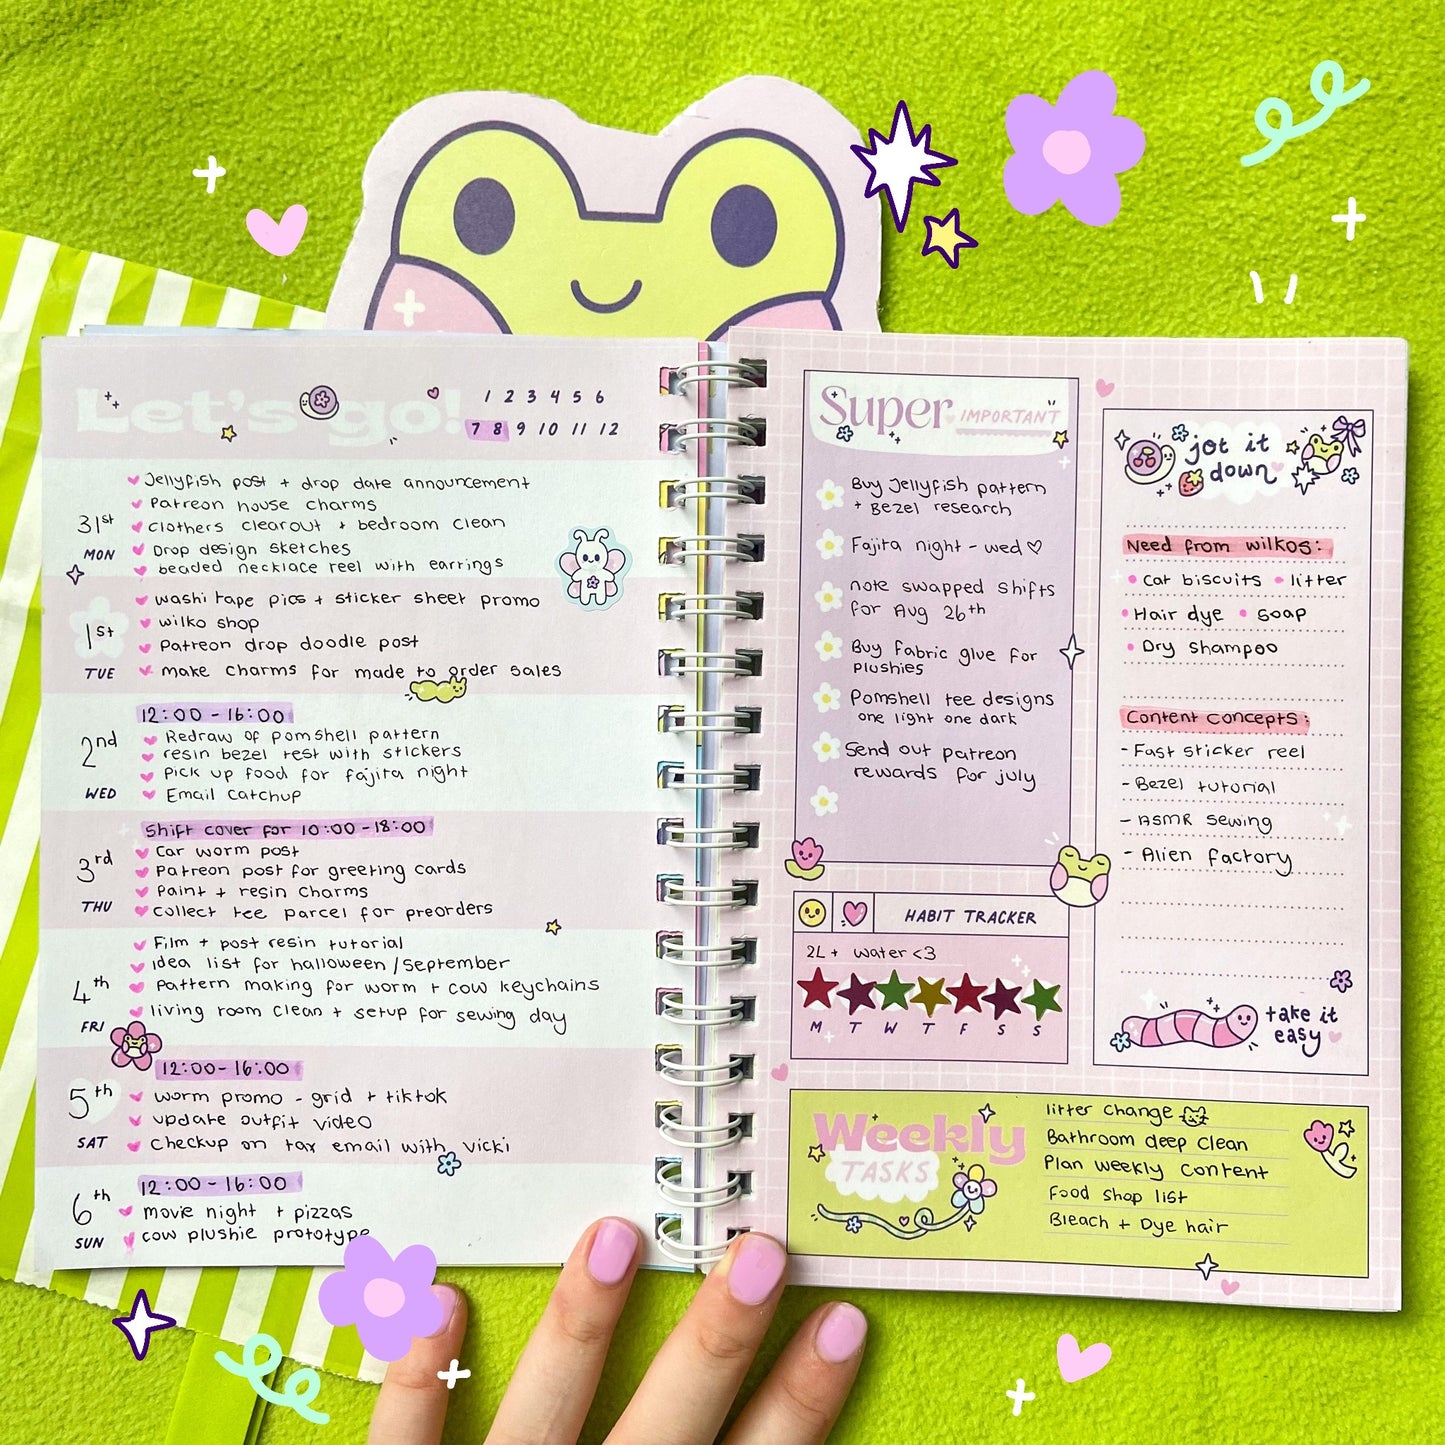 Let's go!
1 2 3 4 5 6
7 8 9 10 11 12
31st
MON
Jellyfish post + drop date announcement
Patreon house charms
clothers clearout + bedroom clean
Drop design sketches
beaded necklace reel with earrings
1st
TUE
washi tape pics + sticker sheet promo
wilko shop
Patreon drop doodle post
make charms for made to order sales
2nd
WED
12:00 - 16:00
Redraw of pomshell pattern
resin bezel test with stickers
Pick up food for fajita night
Email catchup
3rd
THU
Shift cover for 10:00 - 18:00
Car worm post
Patreon post for greeting cards
Paint + resin charms
collect tee parcel for preorders
4th
FRI
Film + post resin tutorial
idea list for halloween / September
Pattern making for worm + cow keychains
living room clean + setup for sewing day
5th
SAT
12:00 - 16:00
worm promo - grid + tiktok
update outfit video
Checkup on tax email with vicki
6th
SUN
12:00 - 16:00
movie night + pizzas
cow plushie prototype
Super IMPORTANT
Buy Jellyfish pattern
+ Bezel research
Fajita night - wed ♡
note swapped shifts
for Aug 26th
Buy fabric glue for
plushies
Pomshell tee designs
one light one dark
Send out patreon
rewards for july
HABIT TRACKER
2L + water <3
M T W T F S S
jot it
down
Need from wilkos:
• Cat biscuits • litter
• Hair dye • soap
• Dry shampoo
Content concepts:
- Fast sticker reel
- Bezel tutorial
- ASMR sewing
- Alien factory
take it
easy
Weekly
TASKS
litter change
Bathroom deep clean
Plan weekly content
Food shop list
Bleach + Dye hair